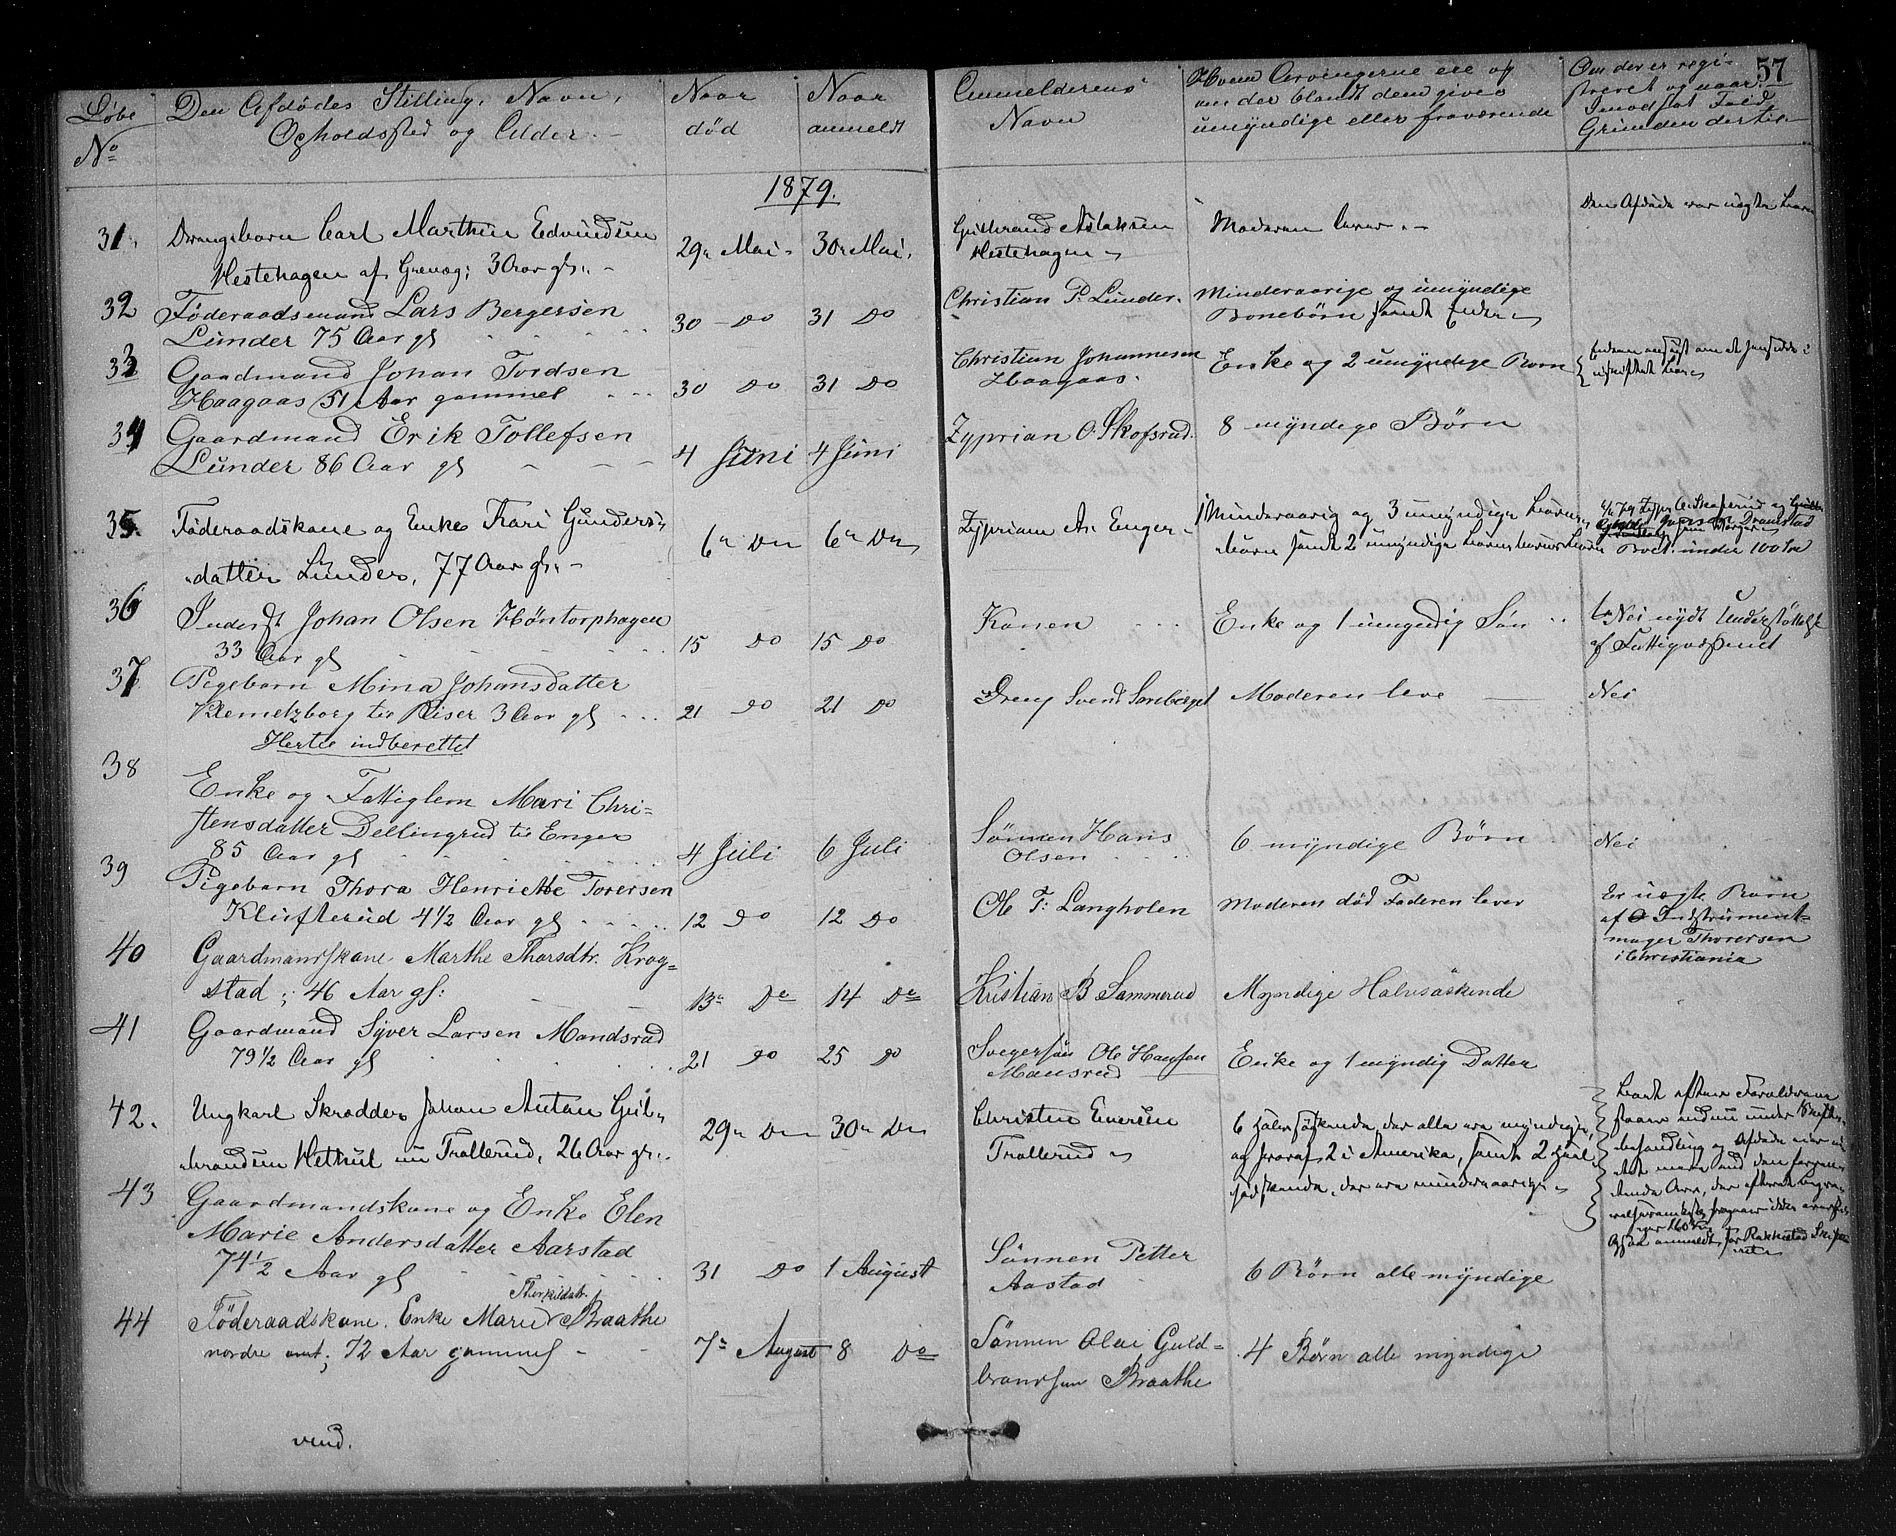 57
Løbe No
Den Afdødes Stilling, Navn, Opholdssted og Alder.
Naar død
Naar anmeldt
Anmelderens Navn
Hvem Arvingerne ere og om der blandt dem gives umyndige eller fraværende
Om der er registreret og naar. Imodsat Fald Grunden dertil
1879.
31. Drengebarn Carl Marthin Edvindsen
Hestehagen af Grenæg; 3 Aar gl.
29 Mai. 30 Mai.
Gulbrand Aslaksen
Hestehagen
Moderen lever.
Den Afdøde var uægte
32 Føderaadsmand Lars Bergersen
Lunder 75 Aar gl
30 Do 31 Do
Christian P. Lunder.
Minderaarige og umyndige
Bonebørn samt Enke
33 Gaardmand Johan Tordsen
Haagaas 51 Aar gammel
30 do 31 Do
Christian Johannesen
Haagaas.
Enke og 2 umyndige Børn
34 Gaardmand Erik Tollefsen
Lunder 86 Aar gl
4 Juni 4 Juni
Zyprian O. Skofsrud.
8 myndige Børn
35. Føderaadskone og Enke Kari Gunders-
datter Lunder, 77 Aar gl.
6 Do 6 Do
Zyprian An. Enger
1 Minderaarig og 3 umyndige
samt 2 umyndige
Boet under 100
36 Inderst Johan Olsen Höntorphagen
33 Aar gl
15 do 15 do
Konen
Enke og 1 umyndig Søn
Nei nydt Understøttelse
af Fattigvæsenet
37 Pigebarn Mina Johansdatter
Klemetzborg til Riser 3 Aar gl
21 do 21 Do
Dreng Svend
Moderen leve
Nei
Hertil indberettet
38 Enke og Fattiglem Mari Chri-
stensdatter Dellingrud til Enger
85 Aar gl
4 Juli 6 Juli
Sønnen Hans
Olsen
6 myndige Børn
Nei
39 Pigebarn Thora Henriette Torersen
Klufterud 4 1/2 Aar gl
12 do 12 Do
Ole T: Langholen
Moderen död Faderen lever
Er uægte Barn
af Instrument-
mager Thorersen
i Christiania
40 Gaardmandskone Marthe Thorsdtr. Krog-
stad; 46 Aar gl:
13 Do 14 Do
Kristian B Sammerud
Myndige Halvsöskende
41 Gaardmand Syver Larsen Mandsrud
79 1/2 Aar gl
21 do 25 do
Svegersøn Ole Hansen
Mansrud
Enke og 1 myndig Datter
42. Ungkarl Skrædder Johan Anton Gul-
brandsen Hethul nu Trollerud, 26 Aar gl.
29 Do 30 Do
Christen Eversen
Trollerud
6 Halvsøskende, der alle ere myndige,
og hvoraf 2 i Amerika, samt 2
søskende, der ere minderaarige
43 Gaardmandskone og Enke Elen
Marie Andersdatter Aarstad
74 1/2 Aar gl
31 Do 1 August
Sønnen Petter
Aastad
6 Børn alle myndige
44 Föderaadskone. Enke Marie Thorkildsdtr. Braathe
nordre 72 Aar gammel
7 August 8 Do
Sønnen Olai Guld-
brandsen Braathe
4 Børn alle myndige
vend.